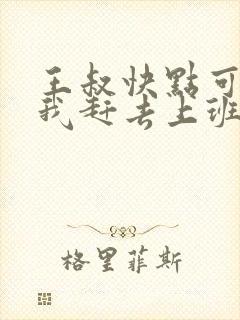 王叔快點可
我赶去上班
格里菲斯